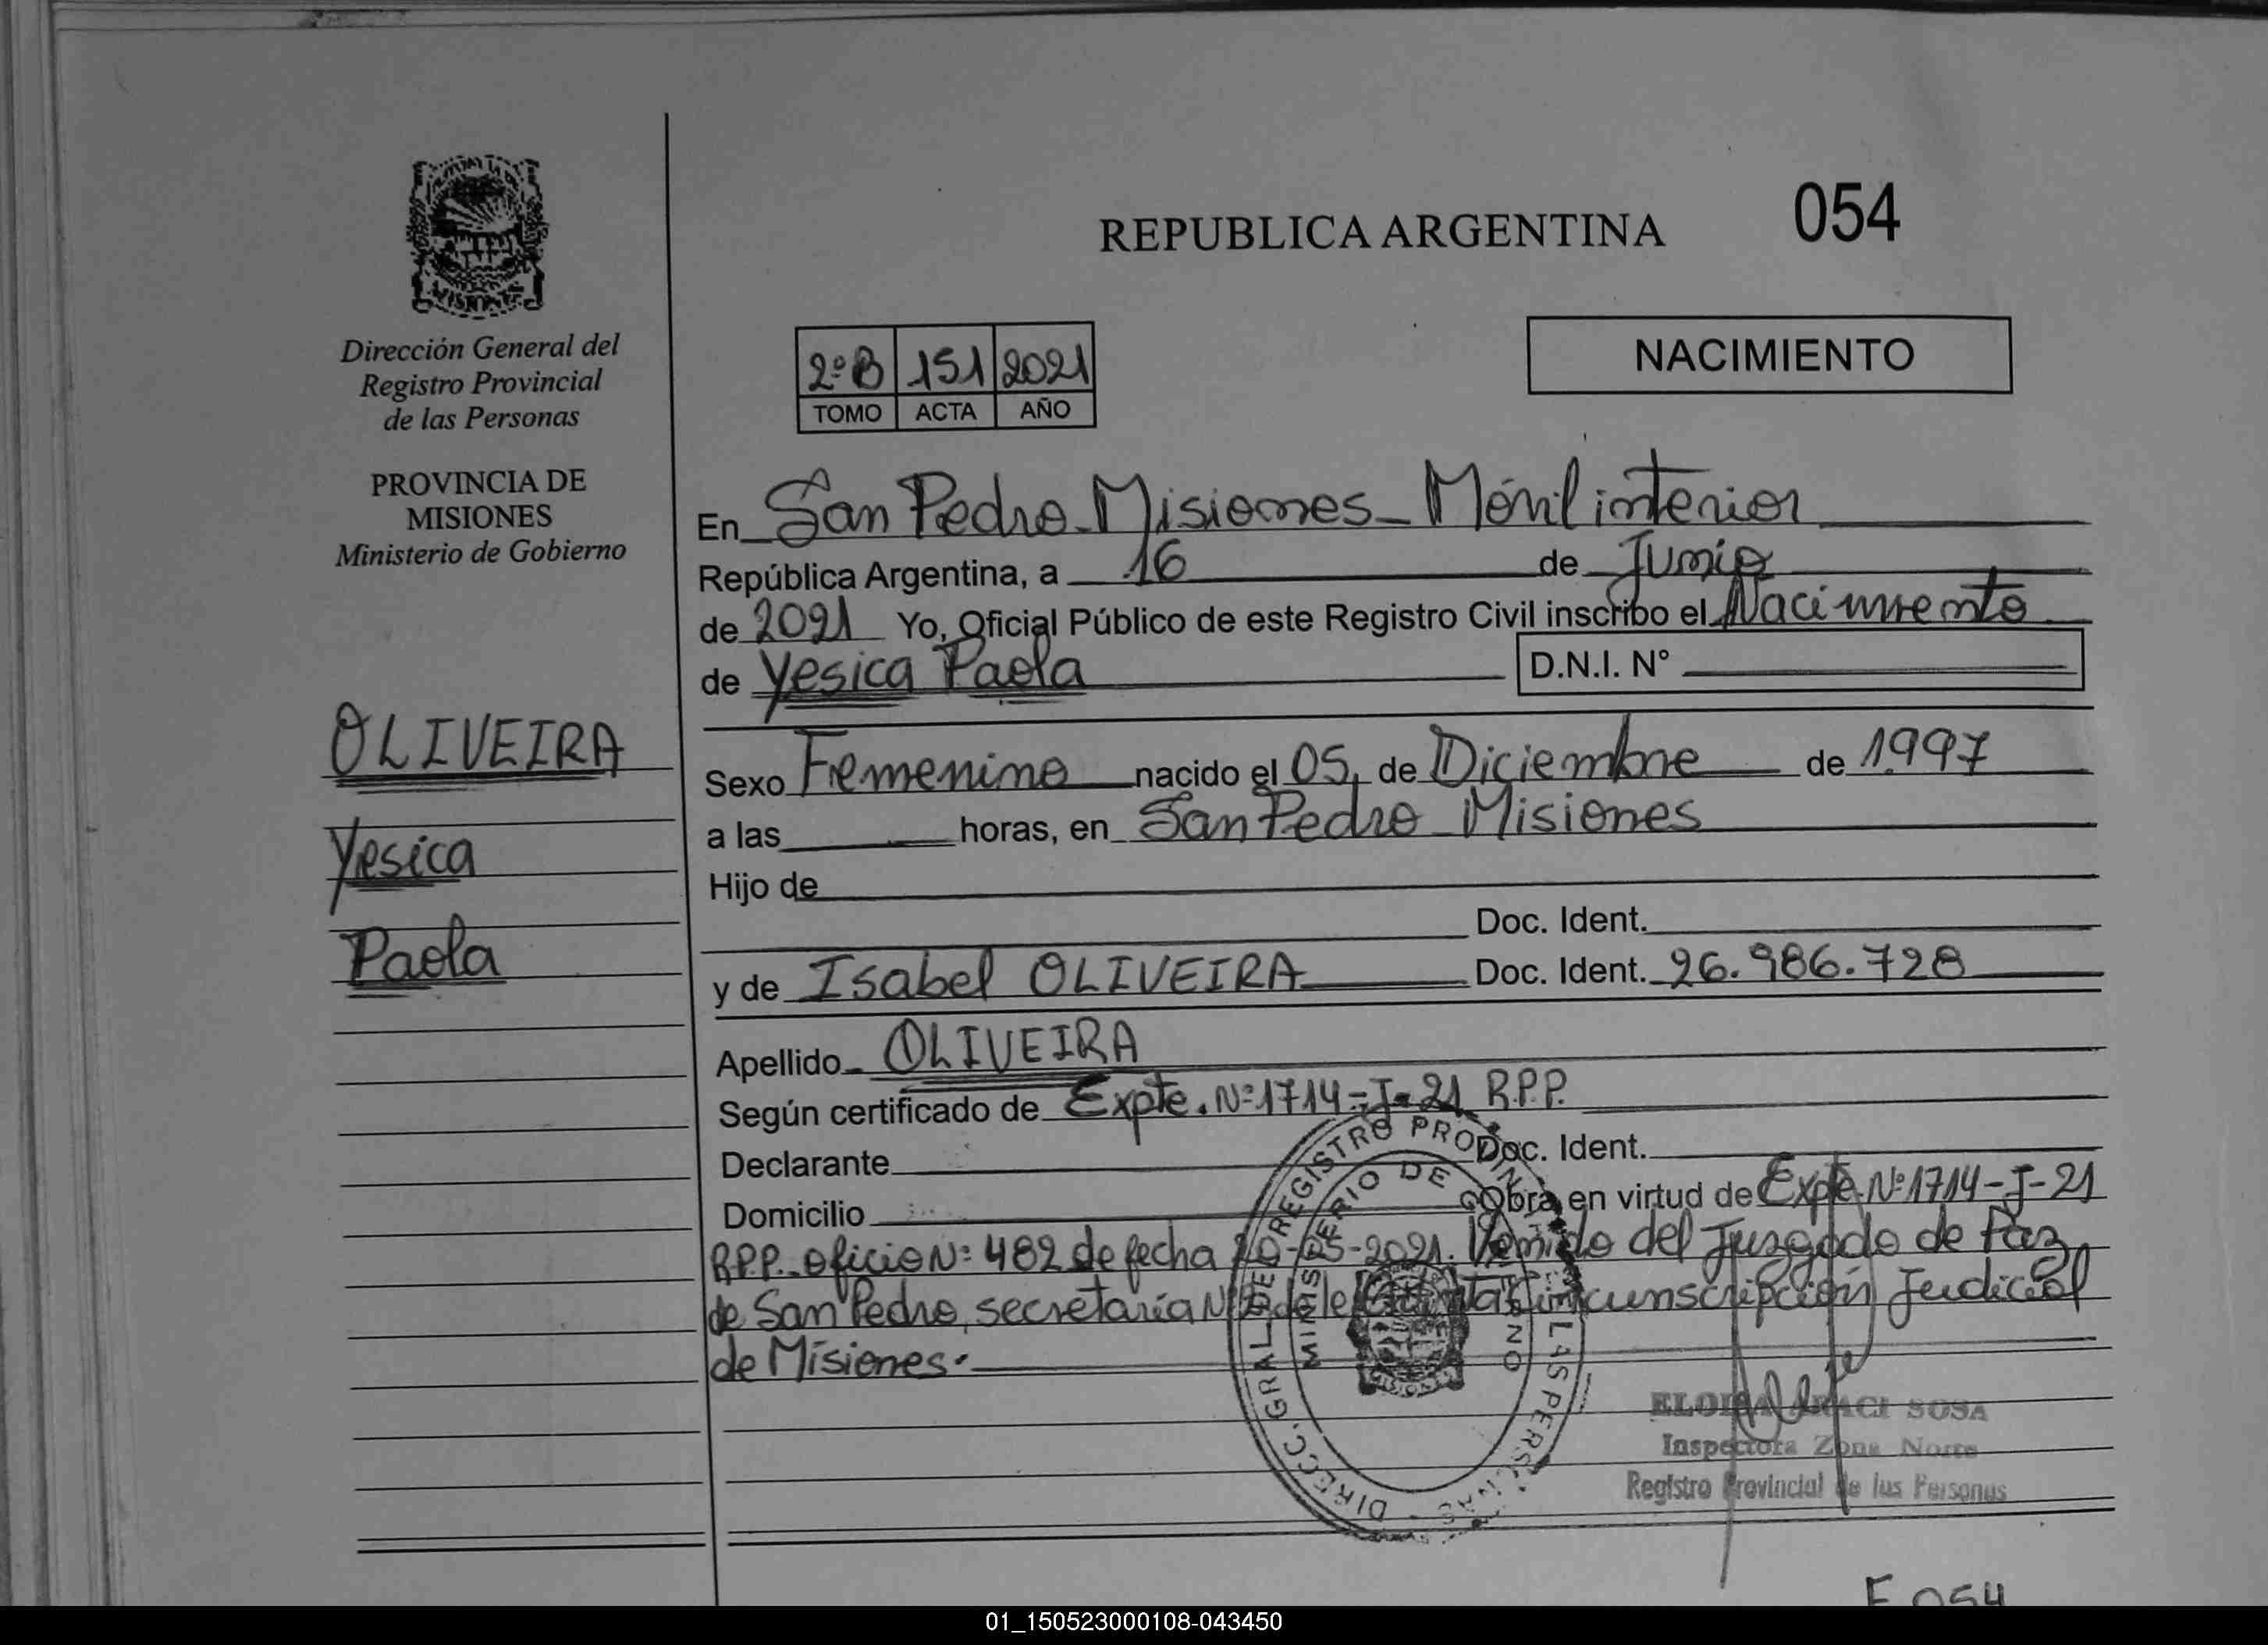 REPUBLICA ARGENTINA 054
Dirección General del
Registro Provincial
de las Personas
PROVINCIA DE
MISIONES
Ministerio de Gobierno
2º B 151 2021
TOMO ACTA AÑO
NACIMIENTO
En San Pedro Misiones Móvil interior
República Argentina, a 16 de Junio
de 2021 Yo, Oficial Público de este Registro Civil inscribo el Nacimiento
de Yesica Paola D.N.I. N°
OLIVEIRA
Yesica
Paola
Sexo Femenino nacido el 05 de Diciembre de 1997
a las horas, en San Pedro Misiones
Hijo de
Doc. Ident.
y de Isabel OLIVEIRA Doc. Ident. 26.986.728
Apellido OLIVEIRA
Según certificado de Expte. Nº 1714-J-21 R.P.P.
Declarante Doc. Ident.
Domicilio Obra en virtud de Expte Nº 1714-J-21
R.P.P. Oficio Nº 482 de fecha 20-05-2021. Venido del Juzgado de Paz
de San Pedro, secretaría circunscripción Judicial
de Misiones.
DIRECC. GRAL. DEL REGISTRO PROVINCIAL DE LAS PERSONAS
MINISTERIO DE GOBIERNO
ELOISA ARACI SOSA
Inspectora Zona Norte
Registro Provincial de las Personas
F 054
01_150523000108-043450